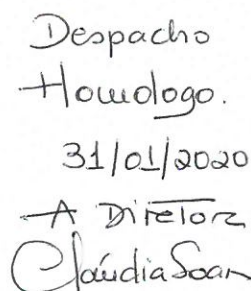 Despacho
Homologo.
31/01/2020
A Diretora
Cláudia Soar